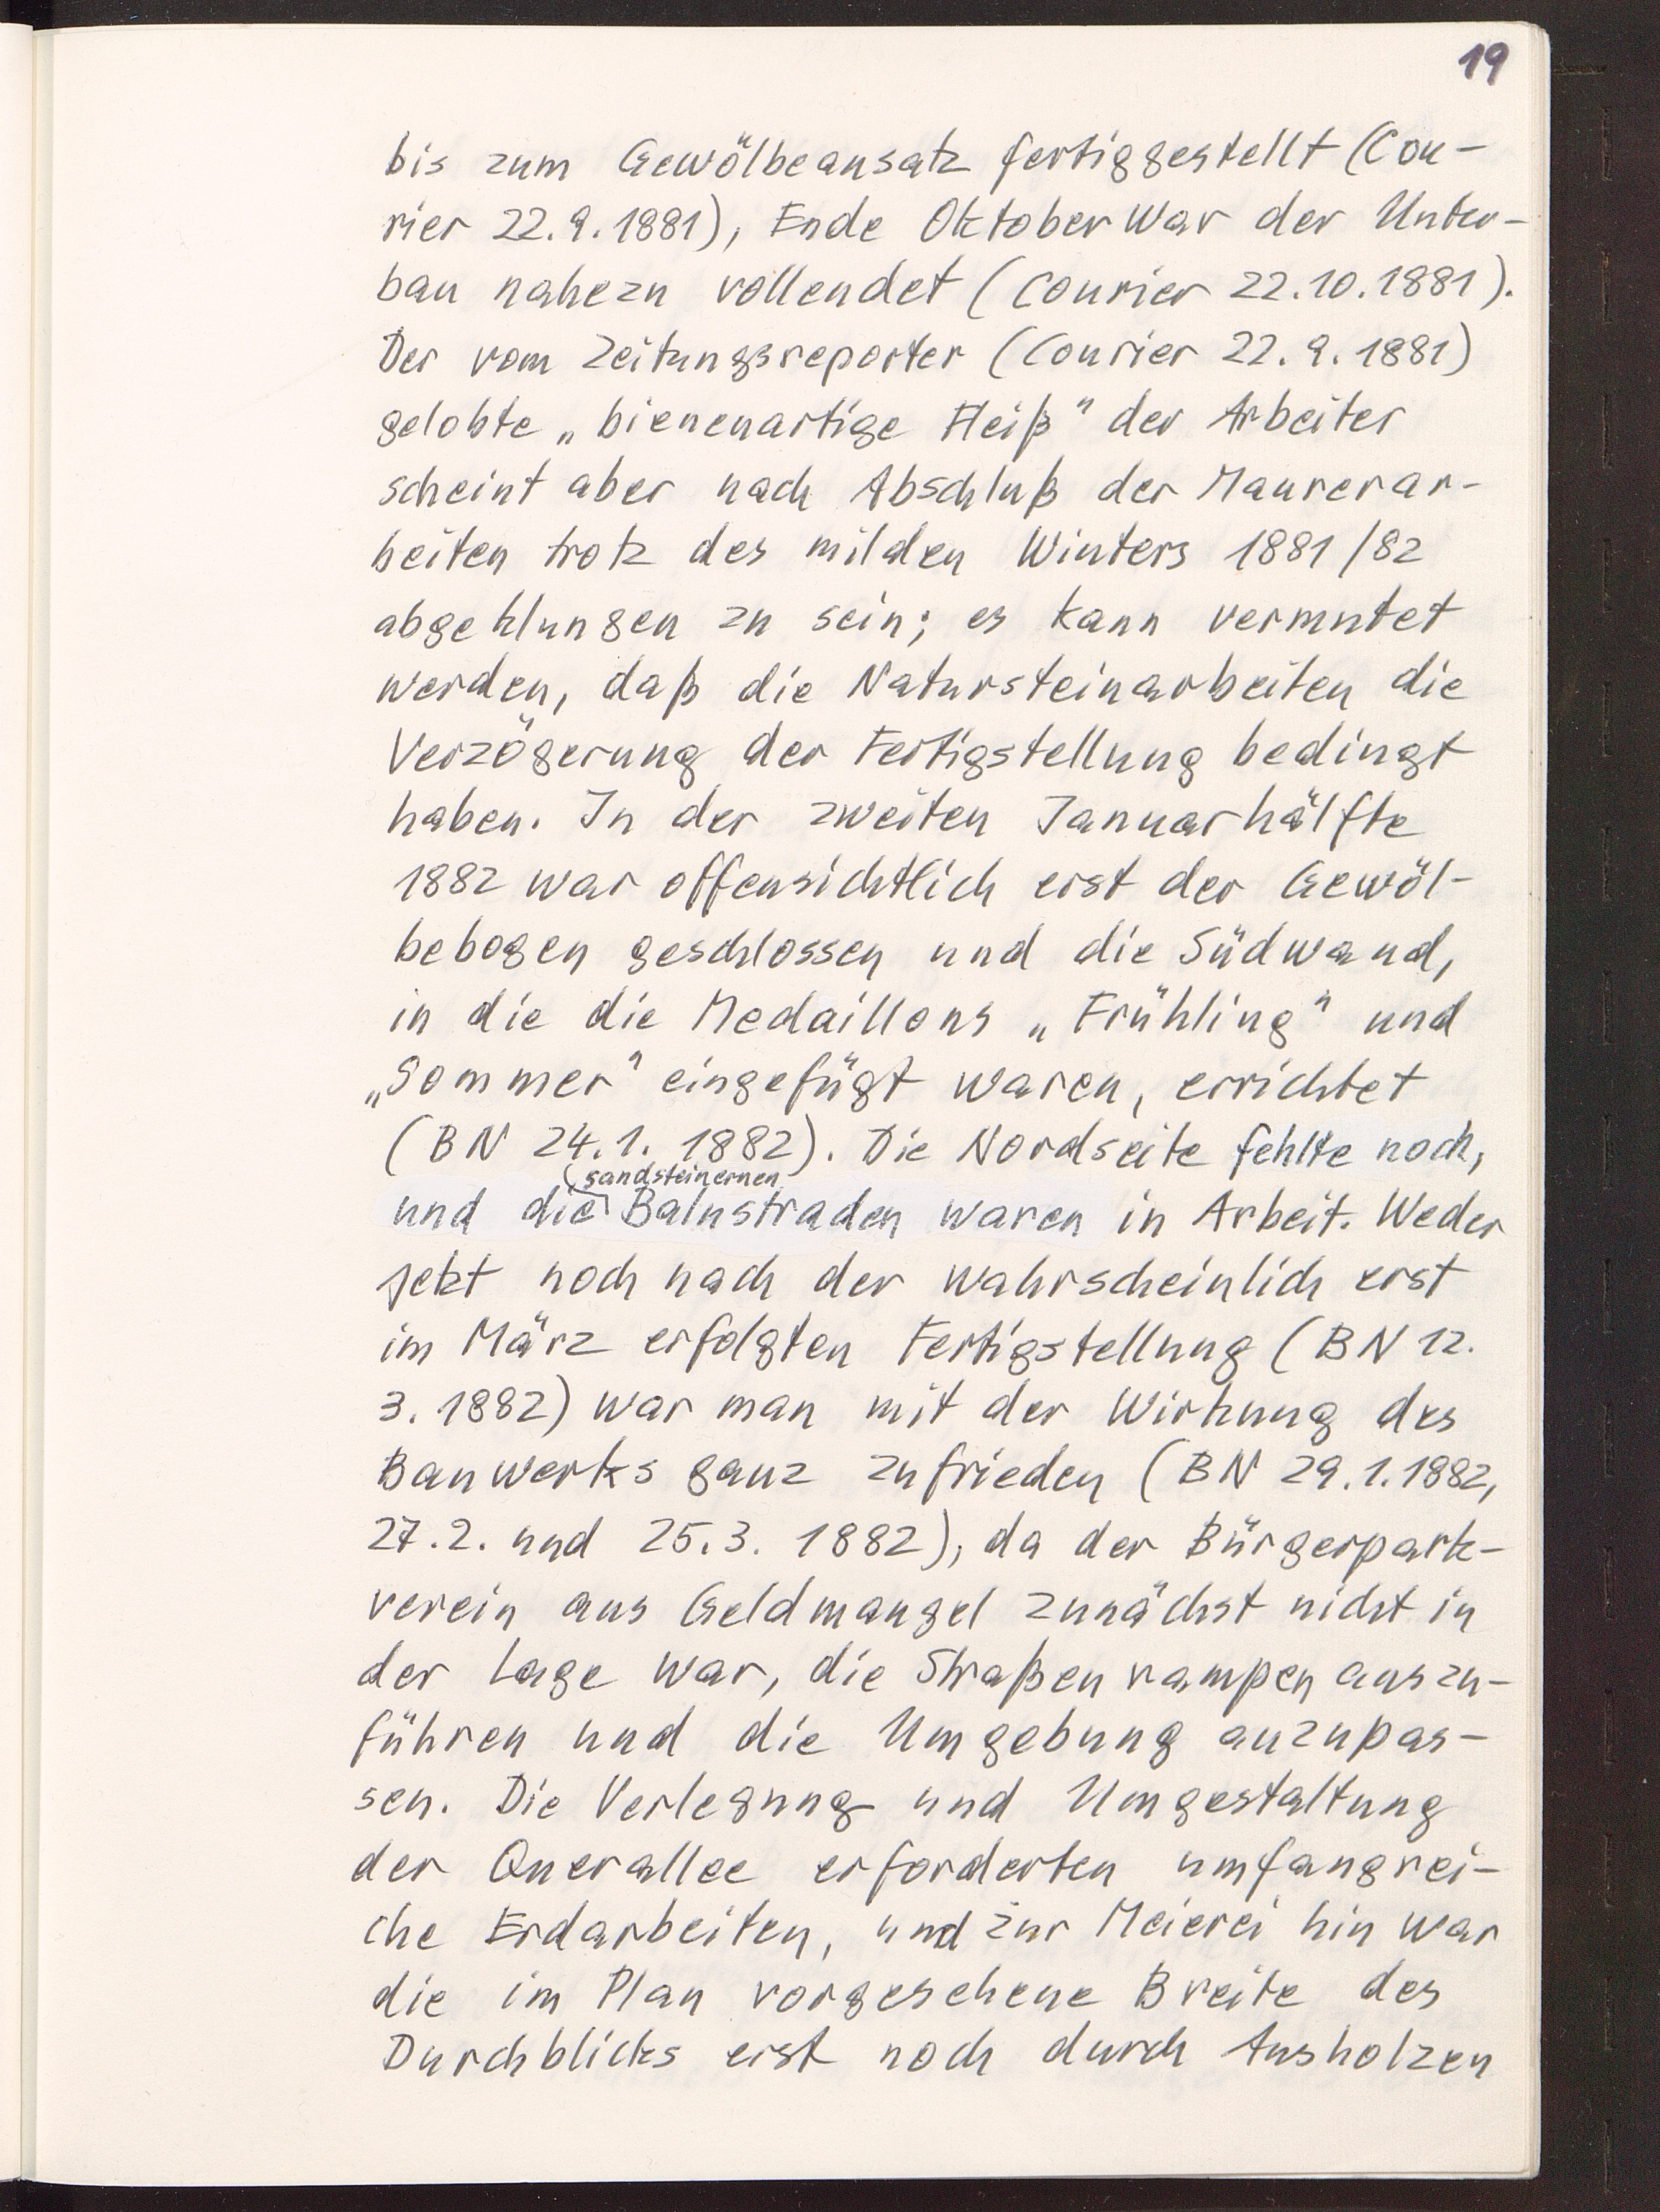 19
bis zum Gewölbeansatz fertiggestellt (Cou-
rier 22.9.1881), Ende Oktober war der Unter-
bau nahezu vollendet (Courier 22.10.1881).
Der vom Zeitungsreporter (Courier 22.9.1881)
gelobte „bienenartige Fleiß" der Arbeiter
scheint aber nach Abschluß der Maurerar-
beiten trotz des milden Winters 1881/82
abgeklungen zu sein; es kann vermutet
werden, daß die Natursteinarbeiten die
Verzögerung der Fertigstellung bedingt
haben. In der zweiten Januarhälfte
1882 war offensichtlich erst der Gewöl-
bebogen geschlossen und die Südwand,
in die die Medaillons „Frühling" und
„Sommer" eingefügt waren, errichtet
(BN 24.1.1882). Die Nordseite fehlte noch,
sandsteinernen
und die Balustraden waren in Arbeit. Weder
jetzt noch nach der wahrscheinlich erst
im März erfolgten Fertigstellung (BN 12.
3.1882) war man mit der Wirkung des
Bauwerks ganz zufrieden (BN 29.1.1882,
27.2. und 25.3.1882), da der Bürgerpark-
verein aus Geldmangel zunächst nicht in
der Lage war, die Straßenrampen auszu-
führen und die Umgebung anzupas-
sen. Die Verlegung und Umgestaltung
der Querallee erforderten umfangrei-
che Erdarbeiten, und zur Meierei hin war
die im Plan vorgesehene Breite des
Durchblicks erst noch durch Ausholzen